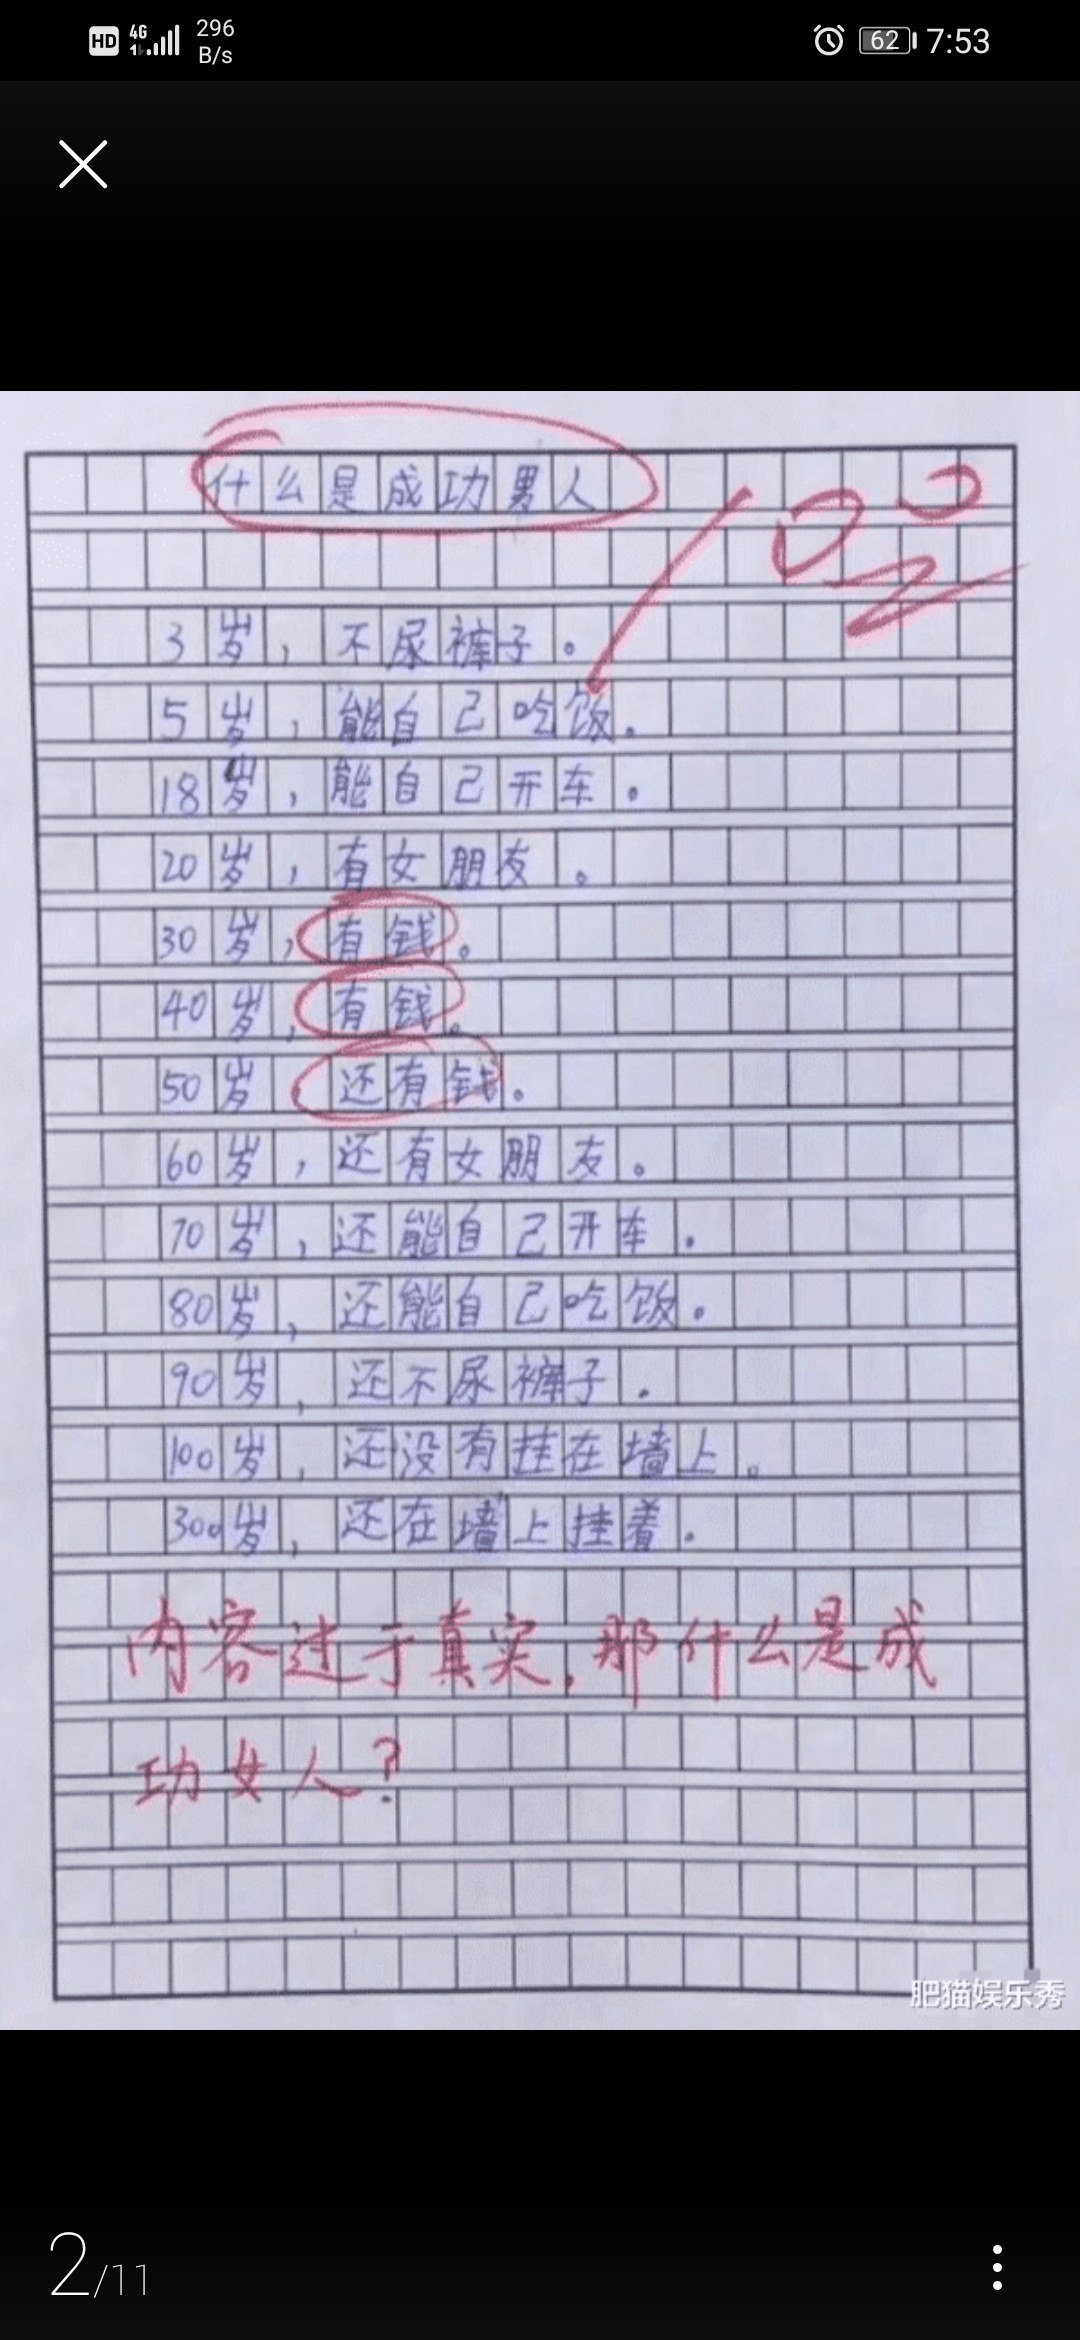 HD 4G 296 B/s 62 7:53
什么是成功男人
100
3岁，不尿裤子。
5岁，能自己吃饭。
18岁，能自己开车。
20岁，有女朋友。
30岁，有钱。
40岁，有钱。
50岁，还有钱。
60岁，还有女朋友。
70岁，还能自己开车。
80岁，还能自己吃饭。
90岁，还不尿裤子。
100岁，还没有挂在墙上。
300岁，还在墙上挂着。
内容过于真实，那什么是成
功女人？
肥猫娱乐秀
2/11